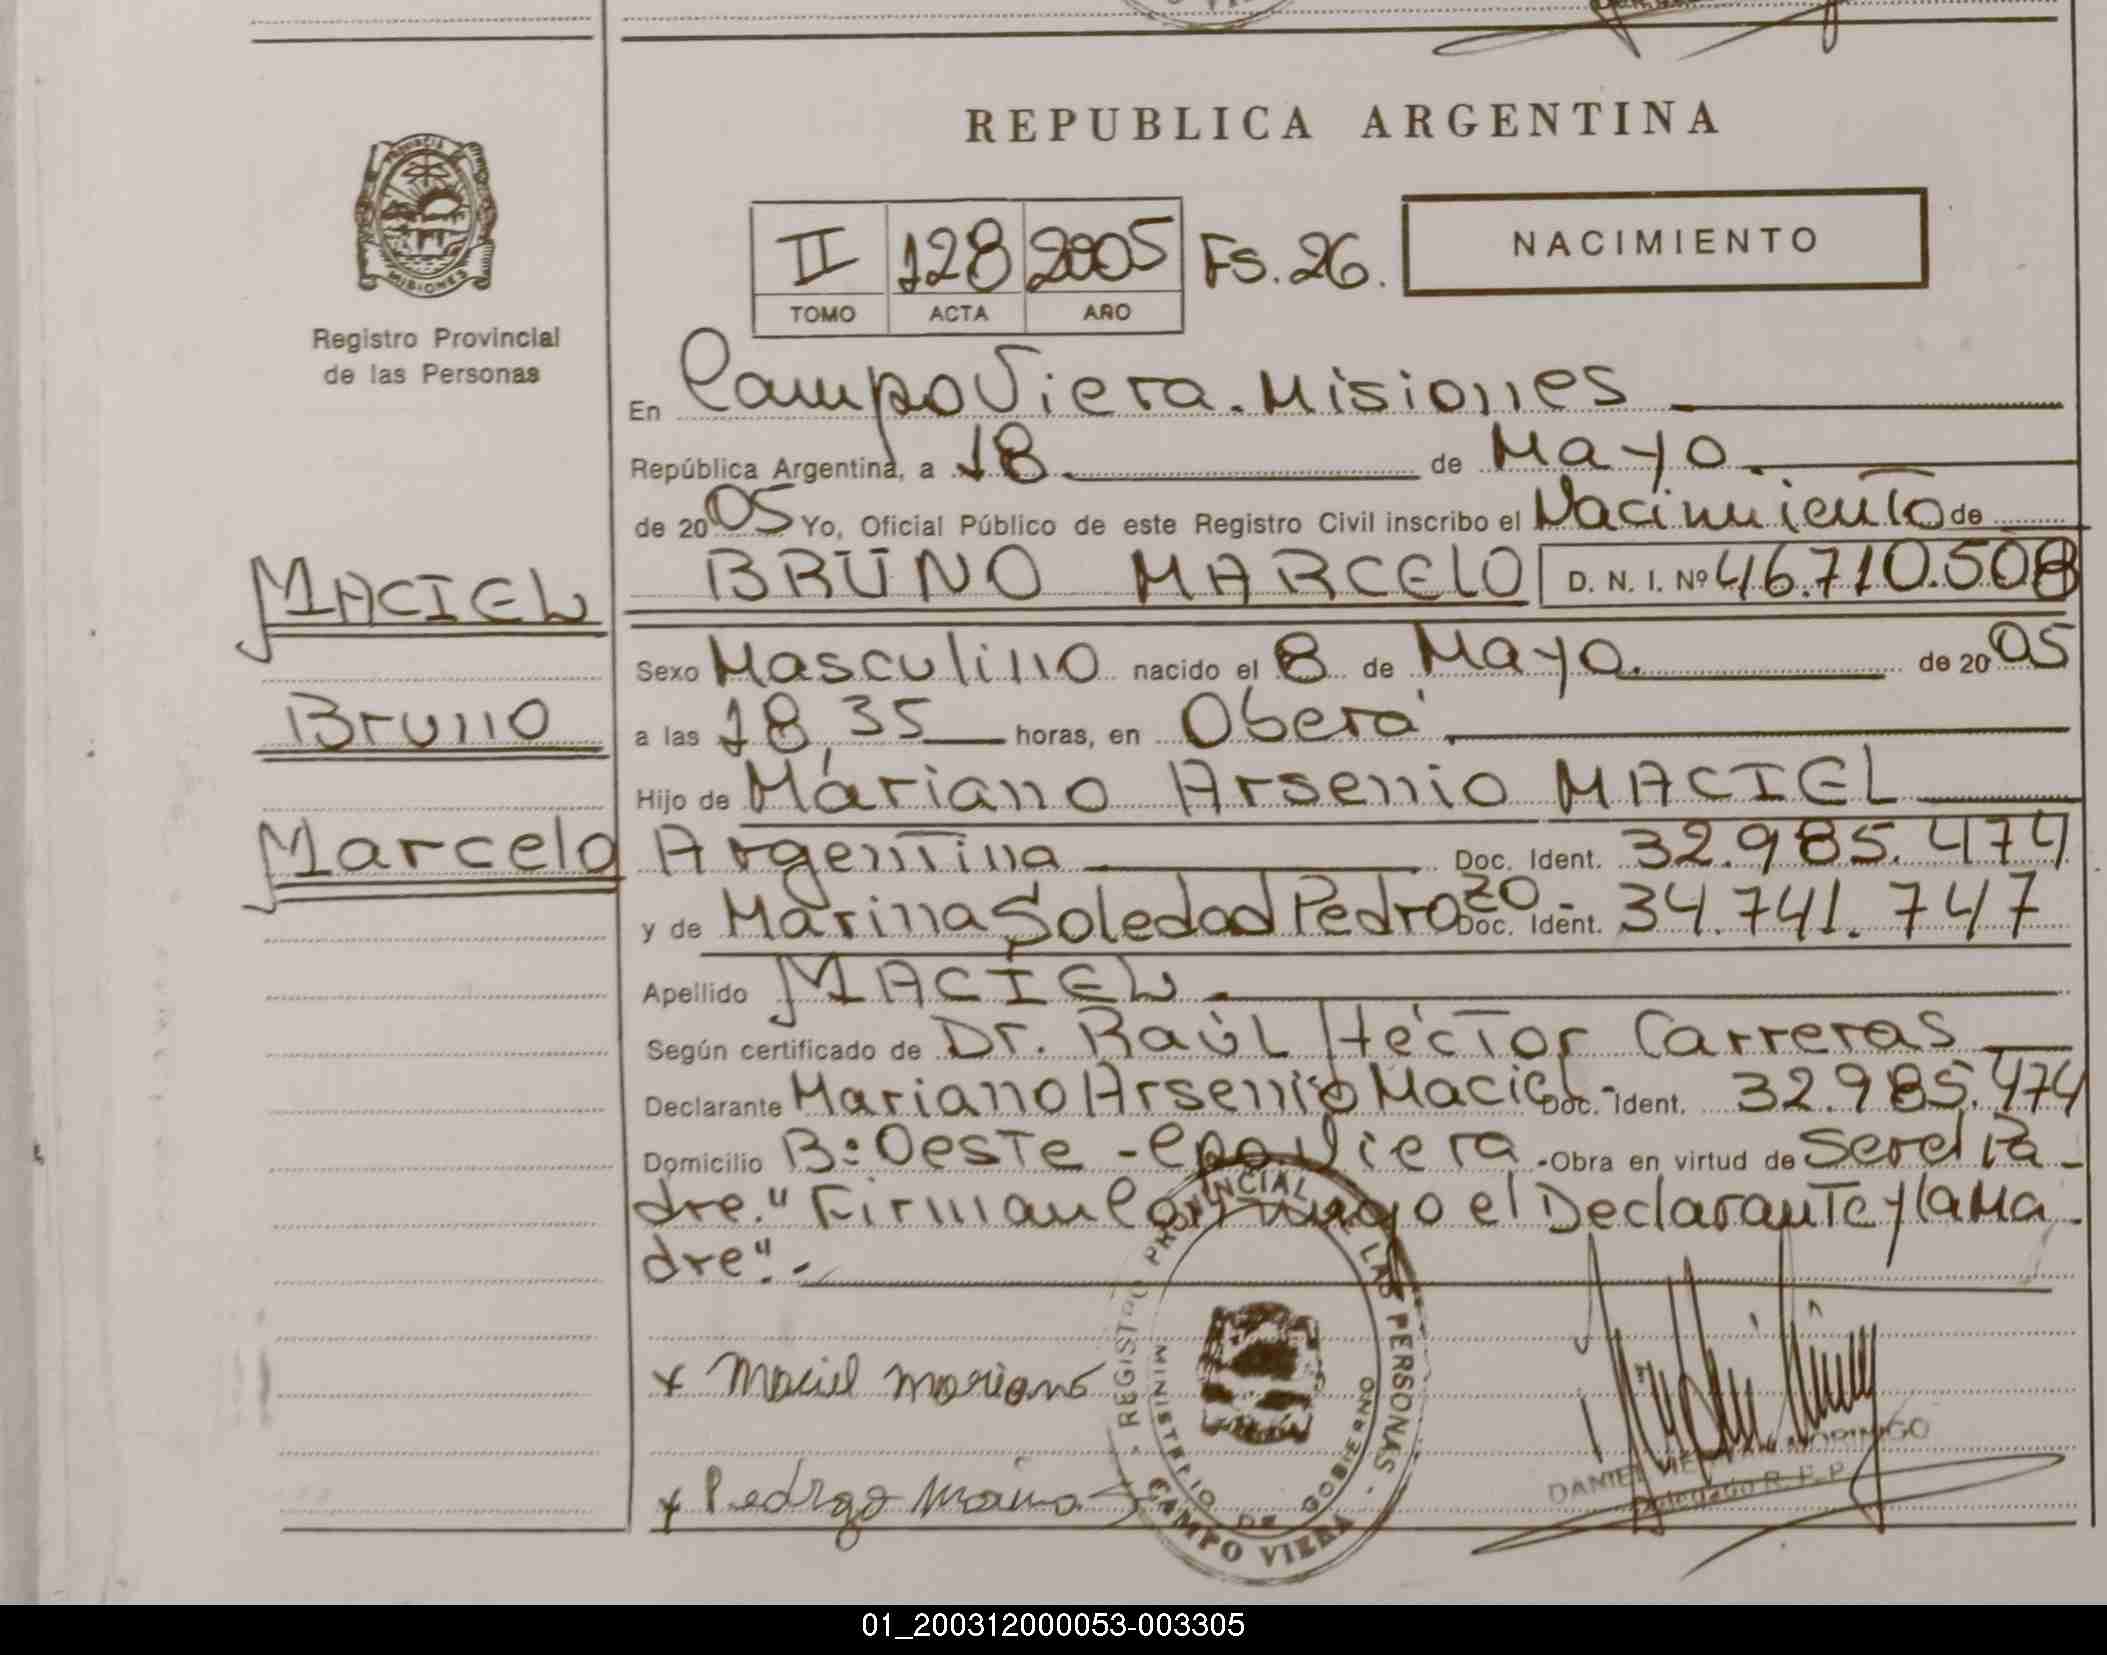 REPUBLICA ARGENTINA
PROVINCIA DE MISIONES
Registro Provincial
de las Personas
II 128 2005 Fs. 26.
TOMO ACTA AÑO
NACIMIENTO
En Campo Viera. Misiones
República Argentina, a 18 de Mayo.
de 2005 Yo, Oficial Público de este Registro Civil inscribo el Nacimiento de
BRUNO MARCELO D. N. I. Nº 46.710.508
MACIEL
Bruno
Marcelo
Sexo Masculino nacido el 8 de Mayo. de 2005
a las 18,35 horas, en Oberá
Hijo de Mariano Arsenio MACIEL
Argentina Doc. Ident. 32.985.474
y de Marina Soledad Pedrozo Doc. Ident. 34.741.747
Apellido MACIEL
Según certificado de Dr. Raúl Héctor Carreras
Declarante Mariano Arsenio Maciel Doc. Ident. 32.985.474
Domicilio B: Oeste - Cpo Viera. - Obra en virtud de Ser el Pa-
dre." Firman Conmigo el Declarante y la Ma-
dre".-
x Maciel Mariano
x Pedrozo Marina S
REGISTRO PROVINCIAL DE LAS PERSONAS
MINISTERIO DE GOBIERNO
CAMPO VIERA
DANIEL
Delegado R. P. P.
01_200312000053-003305